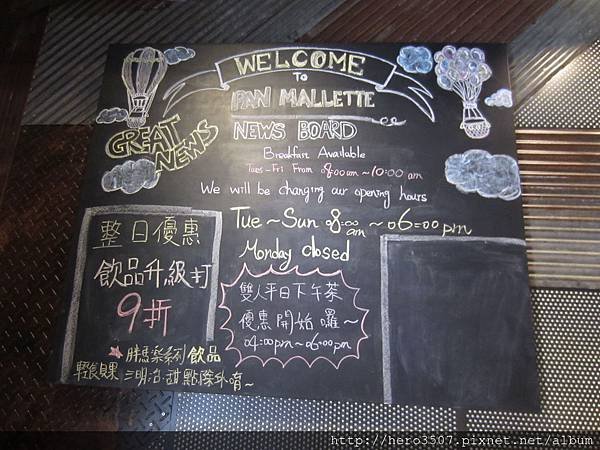 WELCOME
TO
PAN MALLETTE
GREAT
NEWS
NEWS BOARD
Breakfast Available
Tues-Fri From 8:00am~10:00am
We will be changing our opening hours
Tue~Sun 08:00am~06:00pm
Monday closed
整日優惠
飲品升級打
9折
雙人平日下午茶
優惠開始囉~
04:00pm~06:00pm
系列飲品
輕食貝果 三明治.甜點除外唷~
http://hero3507.pixnet.net/album